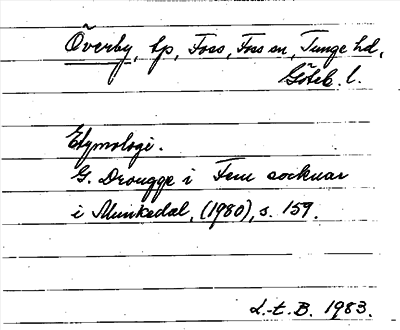 Överby, tp, Foss, Foss sn, Tunge hd,
Göteb. l.
Etymologi.
G. Drougge i Fem socknar
i Munkedal, (1980), s. 159.
L.-t. B. 1983.